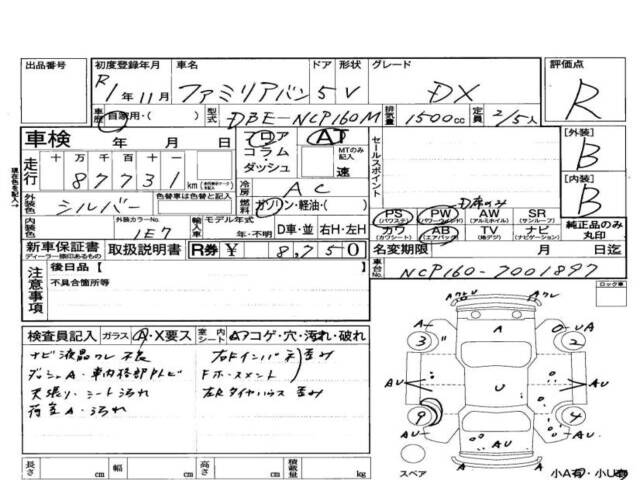 出品番号 初度登録年月 車名 ドア 形状 グレード 評価点
R1年11月 ファミリアバン 5 V DX R
車歴 自家用・( ) 型式 DBE-NCP160M 排気量 1500cc 定員 2/5人
車検 年 月 日 フロア AT セールスポイント [外装] B
コラム・ダッシュ MTのみ記入 速
走行 十万千百十一 87731 km 冷房 AC [内装] B
外装色 シルバー 色替車は色替と記入 燃料 ガソリン・軽油・( )
PS (パワステ) PW (パワーウィンドウ) AW (アルミホイル) SR (サンルーフ)
内装色 外装カラーNo. 1E7 輸入車 モデル年式 年・不明 D車・並 右H・左H
カワ (カワシート) AB (エアバック) TV (地デジ) ナビ (ナビゲーション) 純正品のみ丸印
新車保証書 ディーラー捺印あるもの 取扱説明書 R券 ¥ 8,750 名変期限 月 日迄
車台No. NCP160-7001897
注意事項 後日品【
不具合箇所等
ロック車
検査員記入 ガラス A・X要ス 室内シート A コゲ・穴・汚れ・破れ
ナビ液晶ワレ 不良 左右Fインパネ 歪み
ダッシュA・車内 Fホースメント
天張り・シート汚れ 左Rタイヤハウス 歪み
荷室A・汚れ
A 3 A A 2 UA
AU U AU
9 4
AU AU AU
スペア A 小A有・小U有
長さ cm 幅 cm 高さ cm 積載量 kg